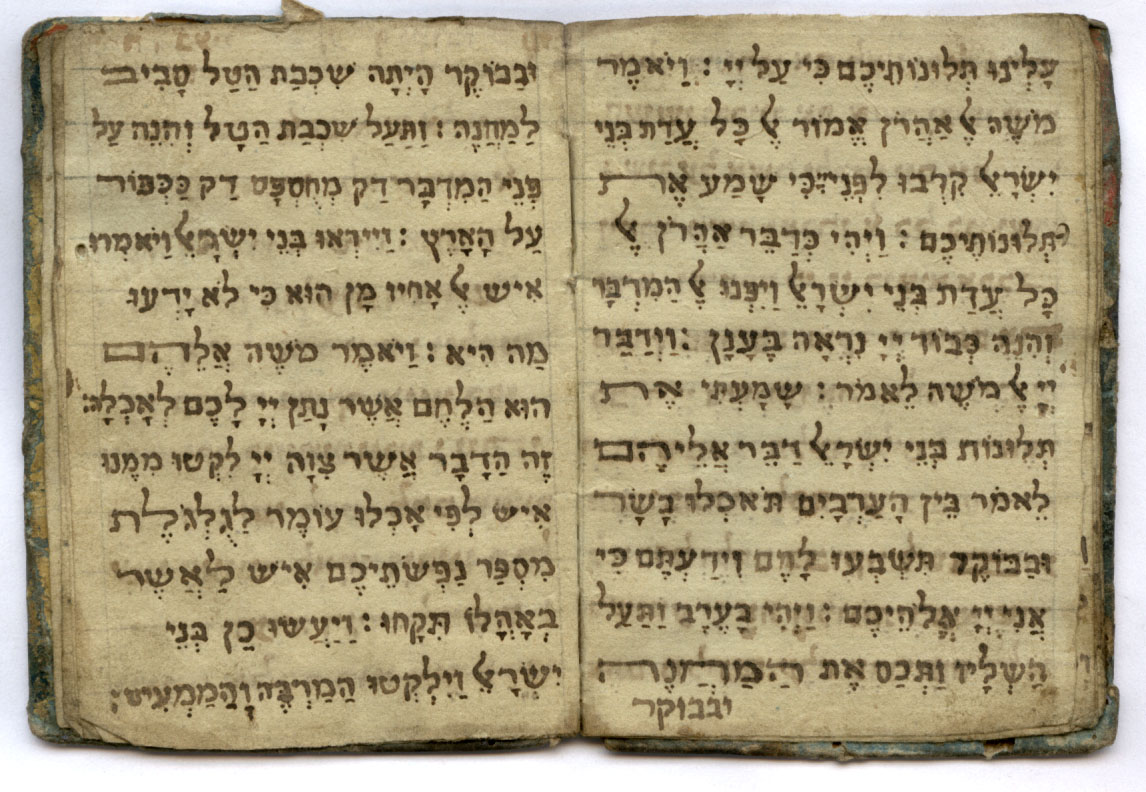 עָלֵינוּ תְלוּנוֹתֵיכֶם כִּי עַל יְיָ : וַיֹאמֶר
מֹשֶה אֶל אַהֲרֹן אֱמוֹר אֶל כָּל עֲדַת בְּנֵי
יִשְרָאֵל קִרְבוּ לִפְנֵי יְיָ כִּי שָמַע אֵת
תְלוּנוֹתֵיכֶם : וַיְהִי כְּדַבֵּר אַהֲרֹן אֶל
כָּל עֲדַת בְּנֵי יִשְרָאֵל וַיִפְנוּ אֶל הַמִדְבָּר
וְהִנֵה כְּבוֹד יְיָ נִרְאָה בֶּעָנָן : וַיְדַבֵּר
יְיָ אֶל מֹשֶה לֵאמֹר : שָמַעְתִּי אֶת
תְלוּנוֹת בְּנֵי יִשְרָאֵל דַבֵּר אֲלֵיהֶם
לֵאמֹר בֵּין הָעַרְבַּיִם תֹאכְלוּ בָשָׂר
וּבַבּוֹקֶר תִשְבְּעוּ לָחֶם וִידַעְתֶּם כִּי
אֲנִי יְיָ אֱלֹהֵיכֶם : וַיְהִי בָעֶרֶב וַתַּעַל
הַשְלָיו וַתְּכַס אֶת הַמַחֲנֶה
ובבוקר
וּבַבּוֹקֶר הָיְתָה שִכְבַת הַטַל סָבִיב
לַמַחֲנֶה : וַתַּעַל שִכְבַת הַטָל וְהִנֵה עַל
פְּנֵי הַמִדְבָּר דַק מְחֻסְפָּס דַק כַּכְּפוֹר
עַל הָאָרֶץ : וַיִירְאוּ בְנֵי יִשְרָאֵל וַיֹאמְרוּ
אִיש אֶל אָחִיו מָן הוּא כִּי לֹא יָדְעוּ
מַה הִיא : וַיֹאמֶר מֹשֶה אֲלֵהֶם
הוּא הַלֶחֶם אֲשֶר נָתַן יְיָ לָכֶם לְאָכְלָה:
זֶה הַדָבָר אֲשֶר צִוָה יְיָ לִקְטוּ מִמֶנוּ
אִיש לְפִי אָכְלוֹ עוֹמֶר לַגֻלְגֹלֶת
מִסְפַּר נַפְשֹתֵיכֶם אִיש לַאֲשֶר
בְּאָהֳלוֹ תִּקָחוּ : וַיַעֲשוּ כֵן בְּנֵי
יִשְרָאֵל וַיִלְקְטוּ הַמַרְבֶּה וְהַמַמְעִיט: